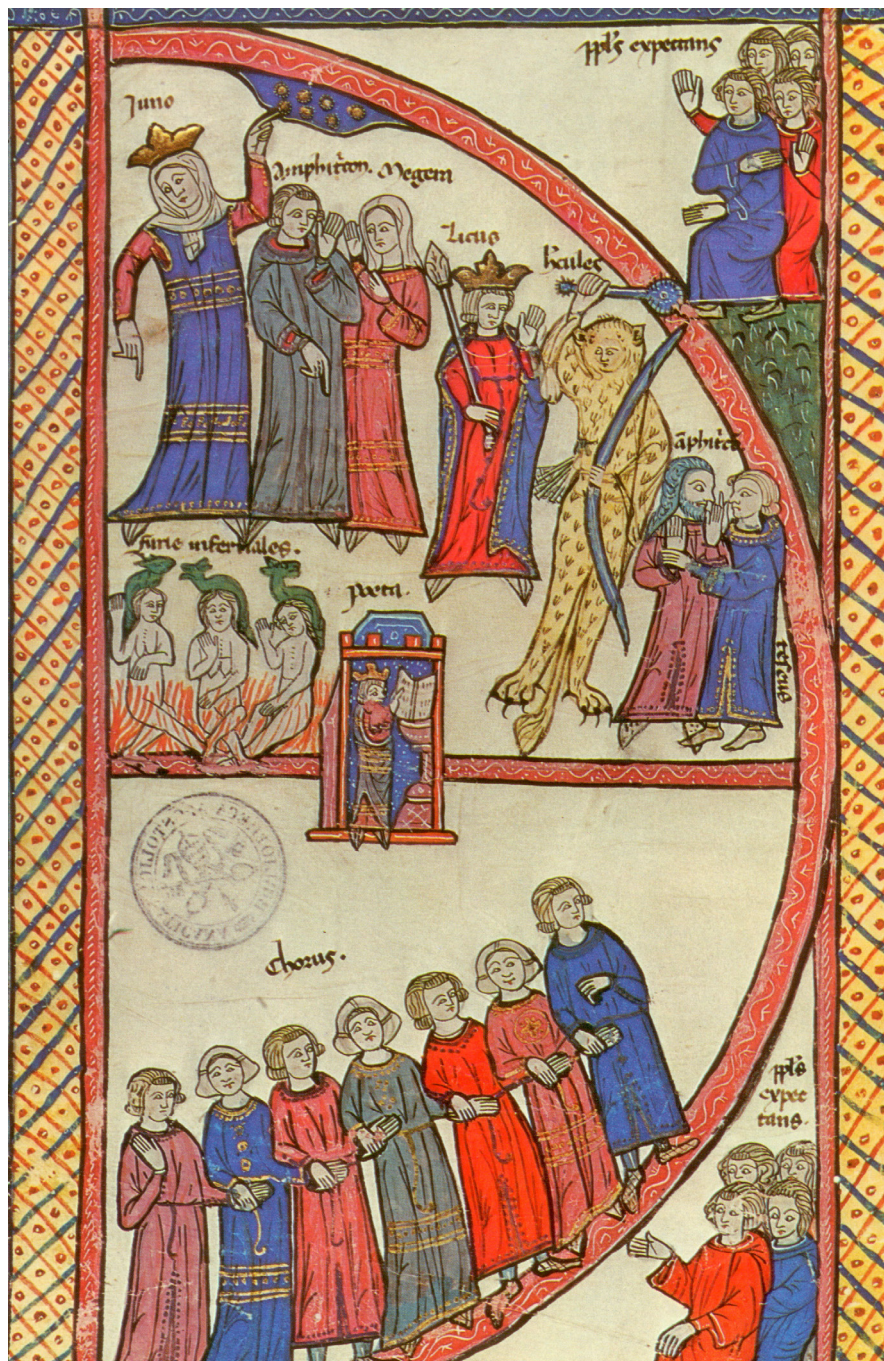 ppl's expectans
Juno
Amphitron. Megera
Licus
h'cules
a͞phitro
furie infernales.
poeta.
tefeus
Chorus.
ppl's
expec
tans.